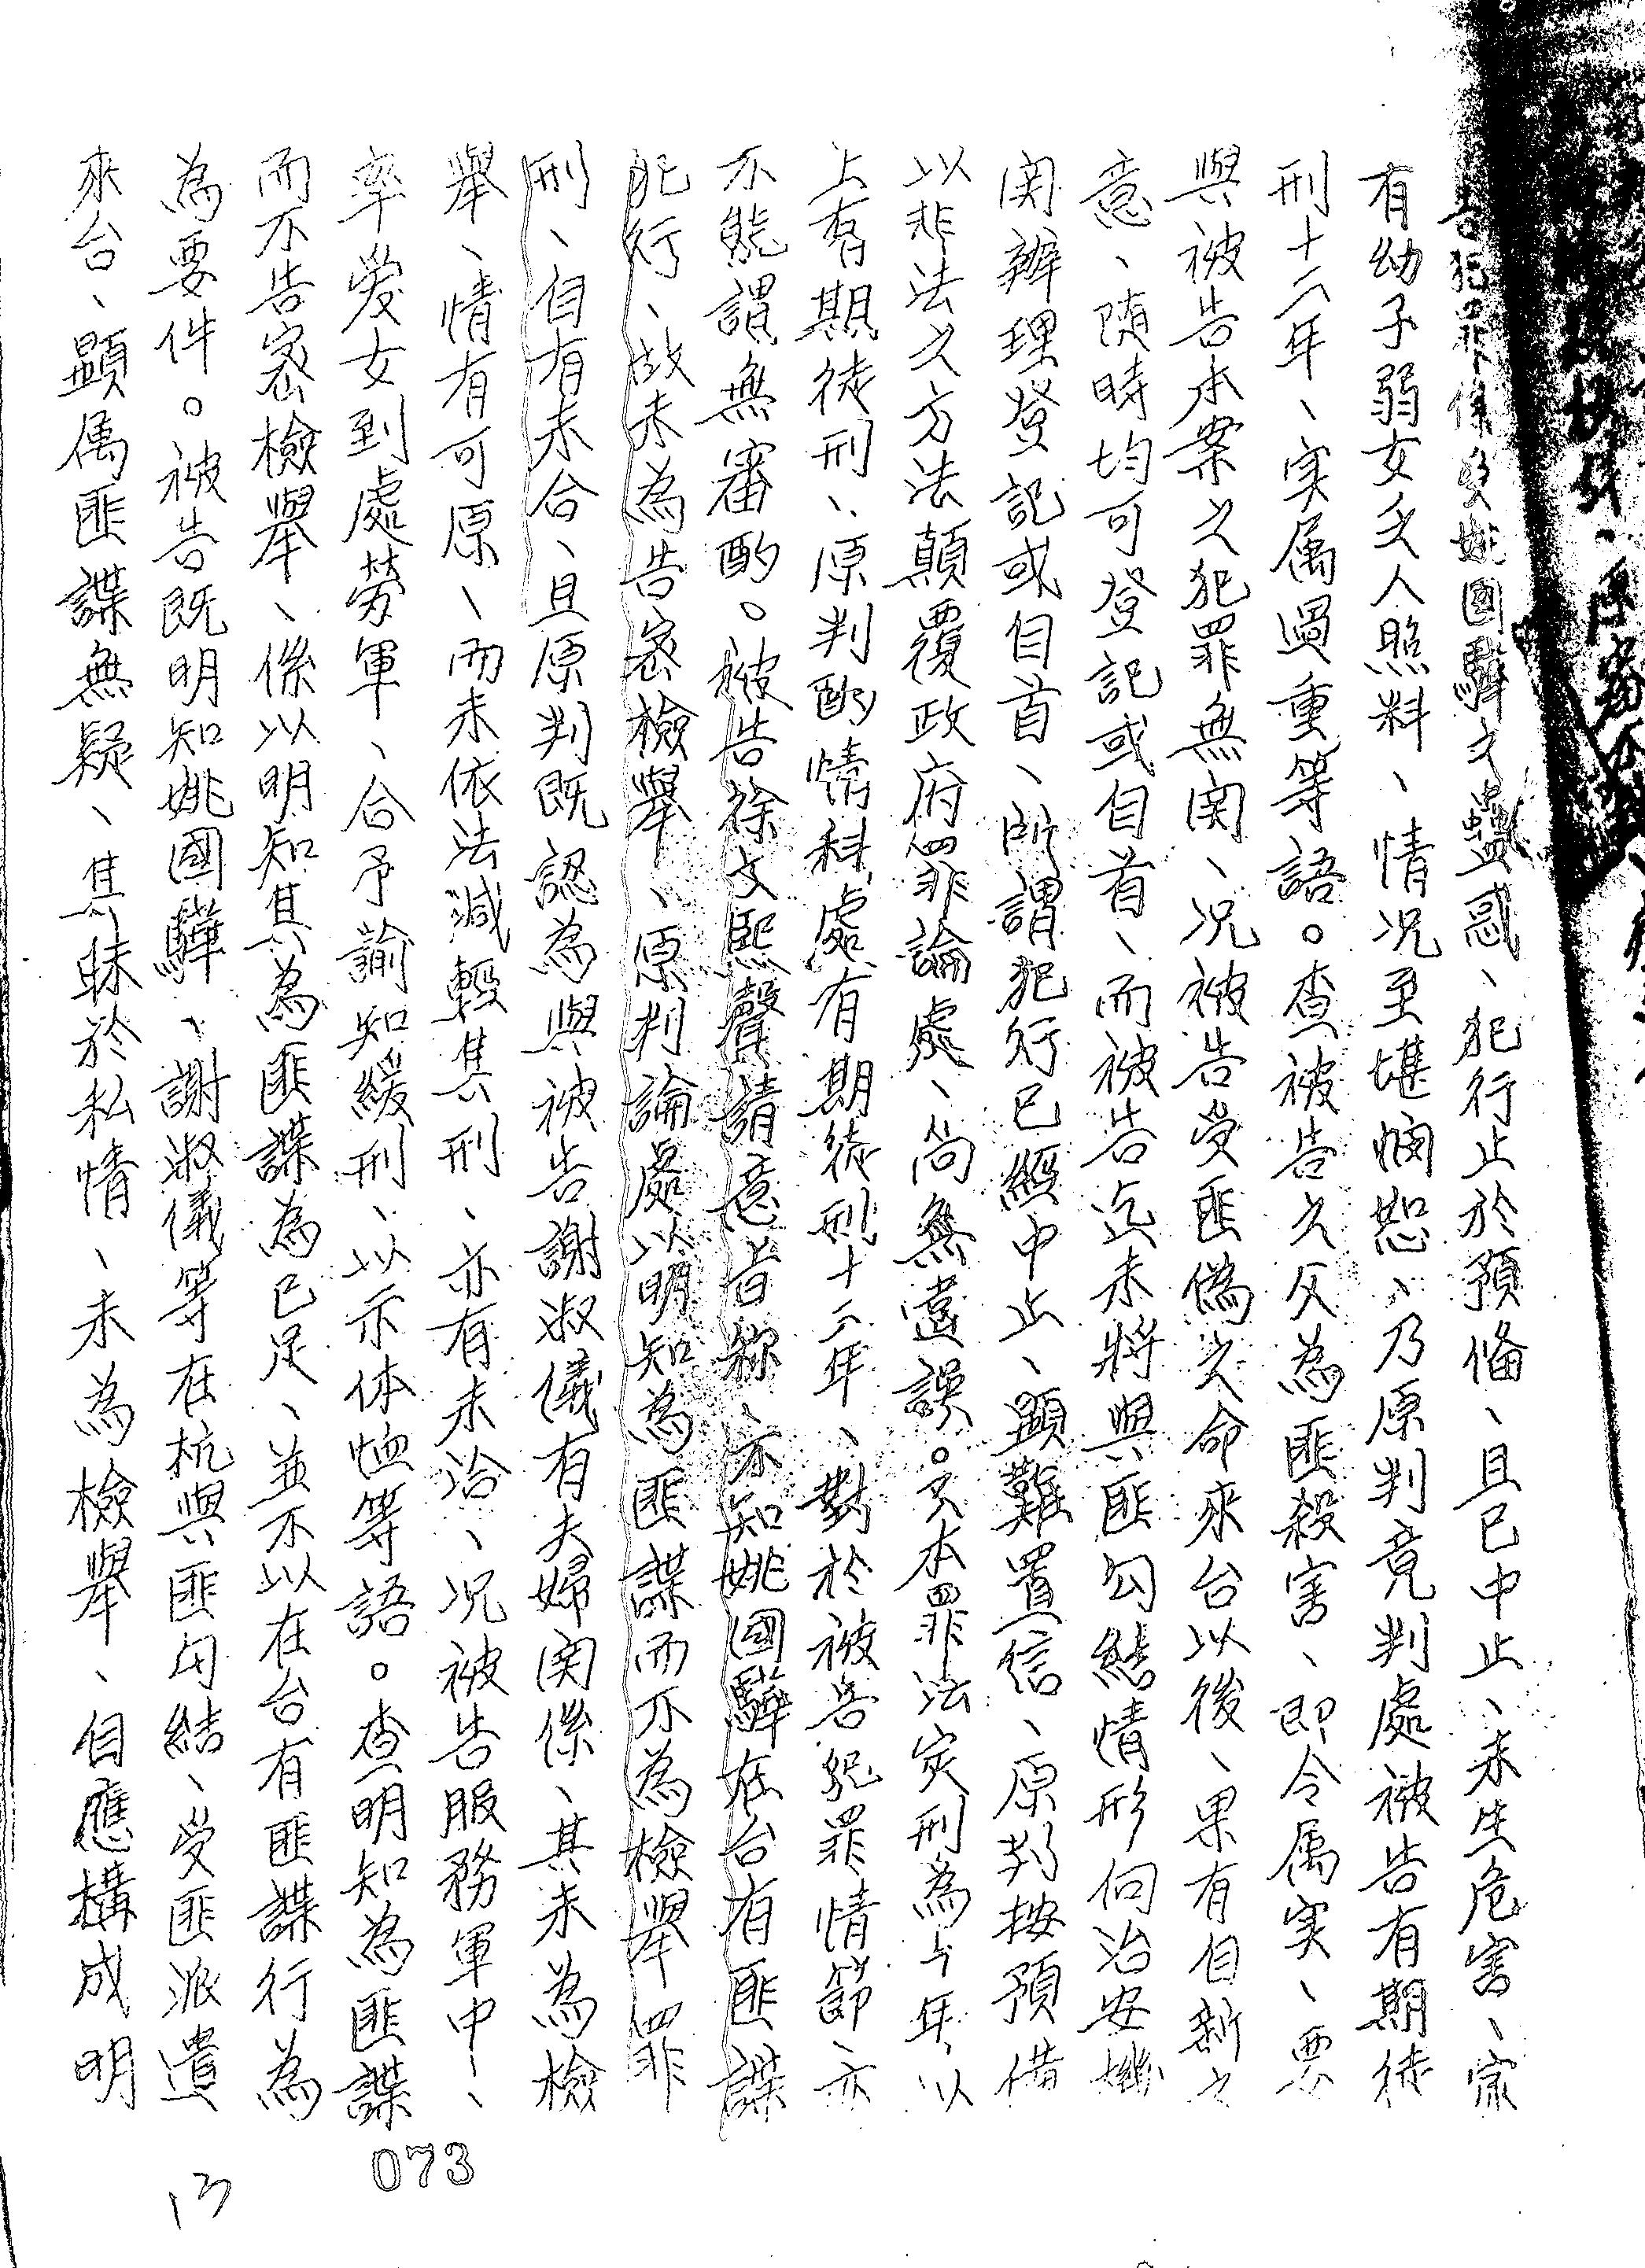 告犯罪係受姚國驊之蠱惑、犯行止於預備、且已中止、未生危害、家
有幼子弱女乏人照料、情況至堪憫恕、乃原判竟判處被告有期徒
刑十二年、实属過重等語。查被告之父為匪殺害、即令属实、要
與被告本案之犯罪無関、况被告受匪偽之命來台以後、果有自新之
意、随時均可登記或自首、而被告迄未將與匪勾結情形向治安機
関辦理登記或自首、所謂犯行已經中止、顕難置信、原判按預備
以非法之方法顛覆政府罪論處、尚無違誤。又本罪法定刑為年以
上有期徒刑、原判酌情科處有期徒刑十二年、對於被告犯罪情節、亦
不能謂無審酌。被告徐文熙聲請意旨稱、不知姚國驊在台有匪諜
犯行、故未為告密檢舉、原判論處以明知為匪諜而不為檢舉罪
刑、自有未合、且原判既認為與被告謝淑儀有夫婦関係、其未為檢
舉、情有可原、而未依法減輕其刑、亦有未洽、况被告服務軍中、
率愛女到處勞軍、合予諭知緩刑、以示体恤等語。查明知為匪諜
而不告密檢舉、係以明知其為匪諜為已足、並不以在台有匪諜行為
為要件。被告既明知姚國驊、謝淑儀等在杭與匪勾結、受匪派遣
來台、顕属匪諜無疑、其昧於私情、未為檢舉、自應構成明
073
13